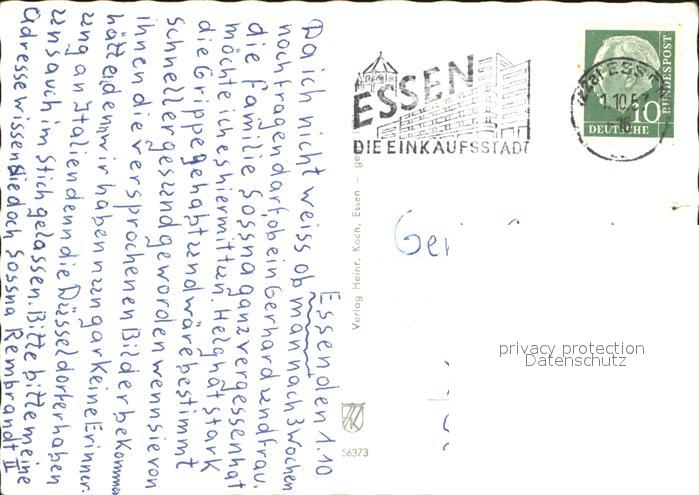 Essen den 1.10
Da ich nicht weiss ob man nach 3 Wochen
noch tragen darf, ob ein Gerhard und Frau,
die Familie Sossna ganz vergessen hat
möchte ich es hiermit tun. Helgh hat stark
die Grippe gehabt und wäre bestimmt
schneller gesund geworden wenn sie von
ihnen die versprochenen Bilder bekommen
hätte, denn wir haben nun gar keine Erinner-
ung an Italien denn die Düsseldorfer haben
uns auch im Stich gelassen. Bitte bitte meine
Adresse wissen sie doch Sossna Rembrandt II
Verlag Heinr. Koch, Essen - ge
56373
ESSEN
DIE EINKAUFSSTADT
ESSEN
1.10.57
16
10
DEUTSCHE
BUNDESPOST
Ger
privacy protection
Datenschutz